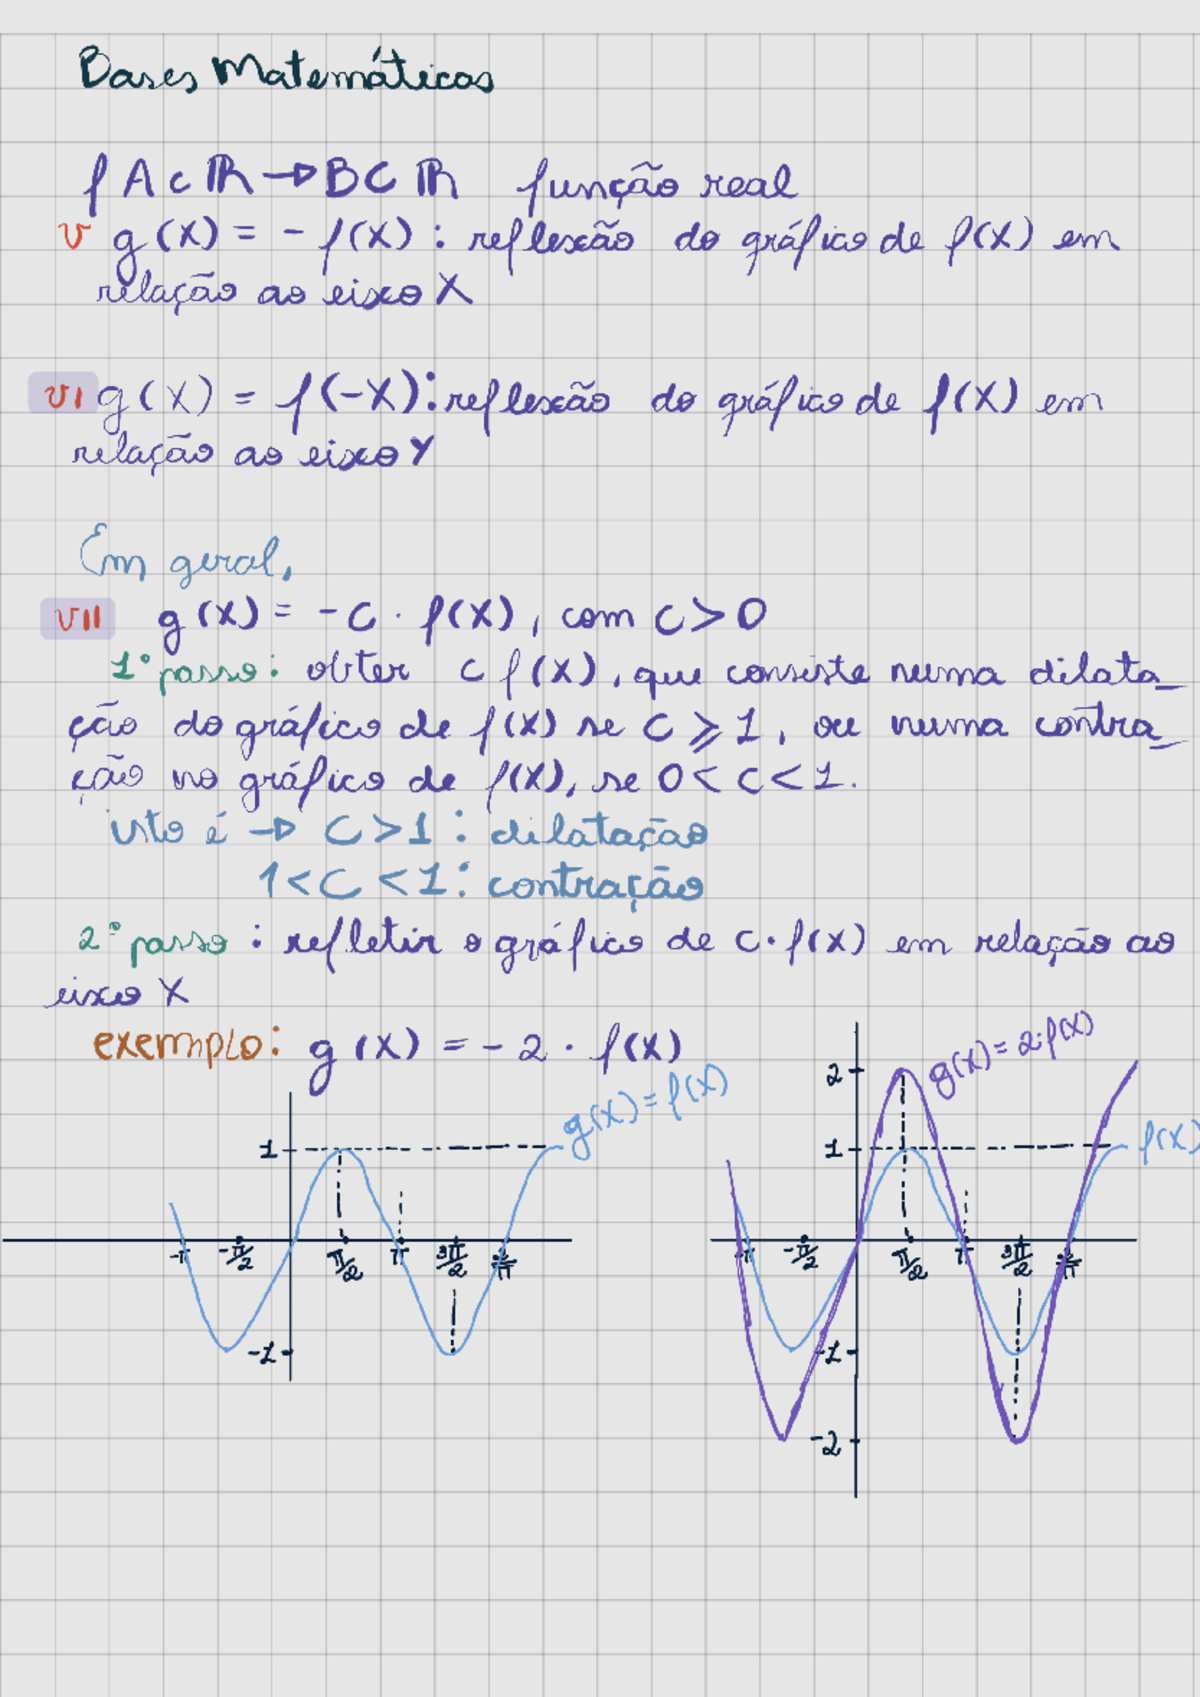 Bases Matemáticas
f A ⊂ ℝ → B ⊂ ℝ função real
V g(X) = - f(X) : reflexão do gráfico de f(X) em
relação ao eixo X
VI g(X) = f(-X): reflexão do gráfico de f(X) em
relação ao eixo Y
Em geral,
VII g(X) = -C · f(X), com C > 0
1º passo: obter C f(X), que consiste numa dilata_
ção do gráfico de f(X) se C ⩾ 1, ou numa contra_
ção no gráfico de f(X), se 0 < C < 1.
isto é → C > 1 : dilatação
1 < C < 1: contração
2º passo : refletir o gráfico de C·f(X) em relação ao
eixo X
exemplo: g(X) = - 2 · f(X)
g(X) = f(X)
1
-π -π/2 π/2 π 3π/2 2π
-1
g(X) = 2·f(X)
2
1
f(X)
-π -π/2 π/2 π 3π/2 2π
-1
-2